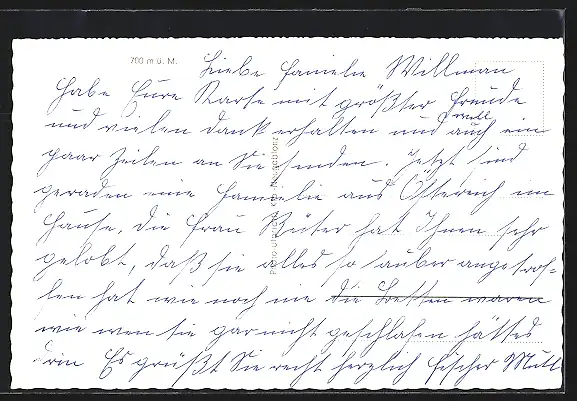 700 m ü. M.
Liebe Familie Willman
Habe Eure Karte mit größter Freude
und vielen Dank erhalten und will auch ein
paar Zeilen an Sie senden. Jetzt sind
geraden eine Familie aus Östereich im
Hause, die Frau Rüter hat Ihnen sehr
gelobt, daß sie alles so sauber angetrof-
fen hat wie noch nie die Betten waren
wie wen sie gar nicht geschlafen hätten
drin Es grüßt Sie recht herzlich Fischer